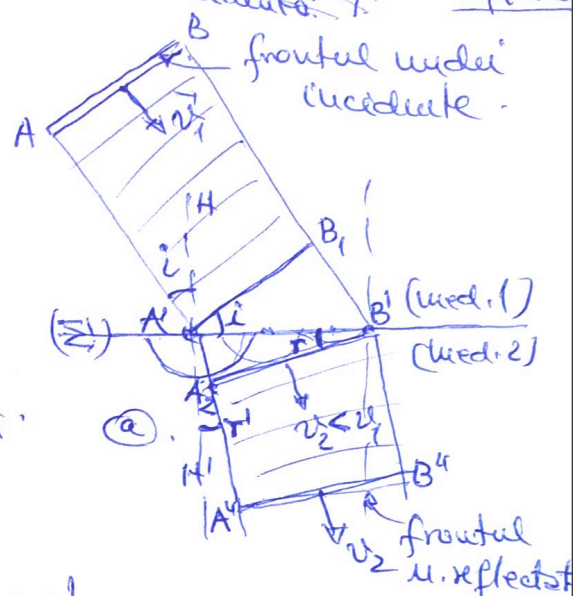 B
frontul undei
incidente.
A
v₁
H
B₁
i
A' i B' (med.1)
(Σ)
r'
(med.2)
A₂
r'
v₂<v₁
ⓐ.
H'
B"
A"
frontul
v₂
u.reflectat